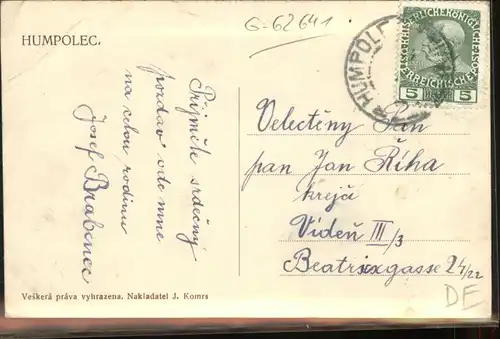 G-62641
HUMPOLEC.
Přijměte srdečný
pozdrav ode mne
na celou rodinu
Josef Brabenec
HUMPOLEC
5 5
Velectěný Pan
pan Jan Říha
krejčí
Vídeň III/3
Beatrixgasse 24/22
DE
Veškerá práva vyhrazena. Nakladatel J. Komrs